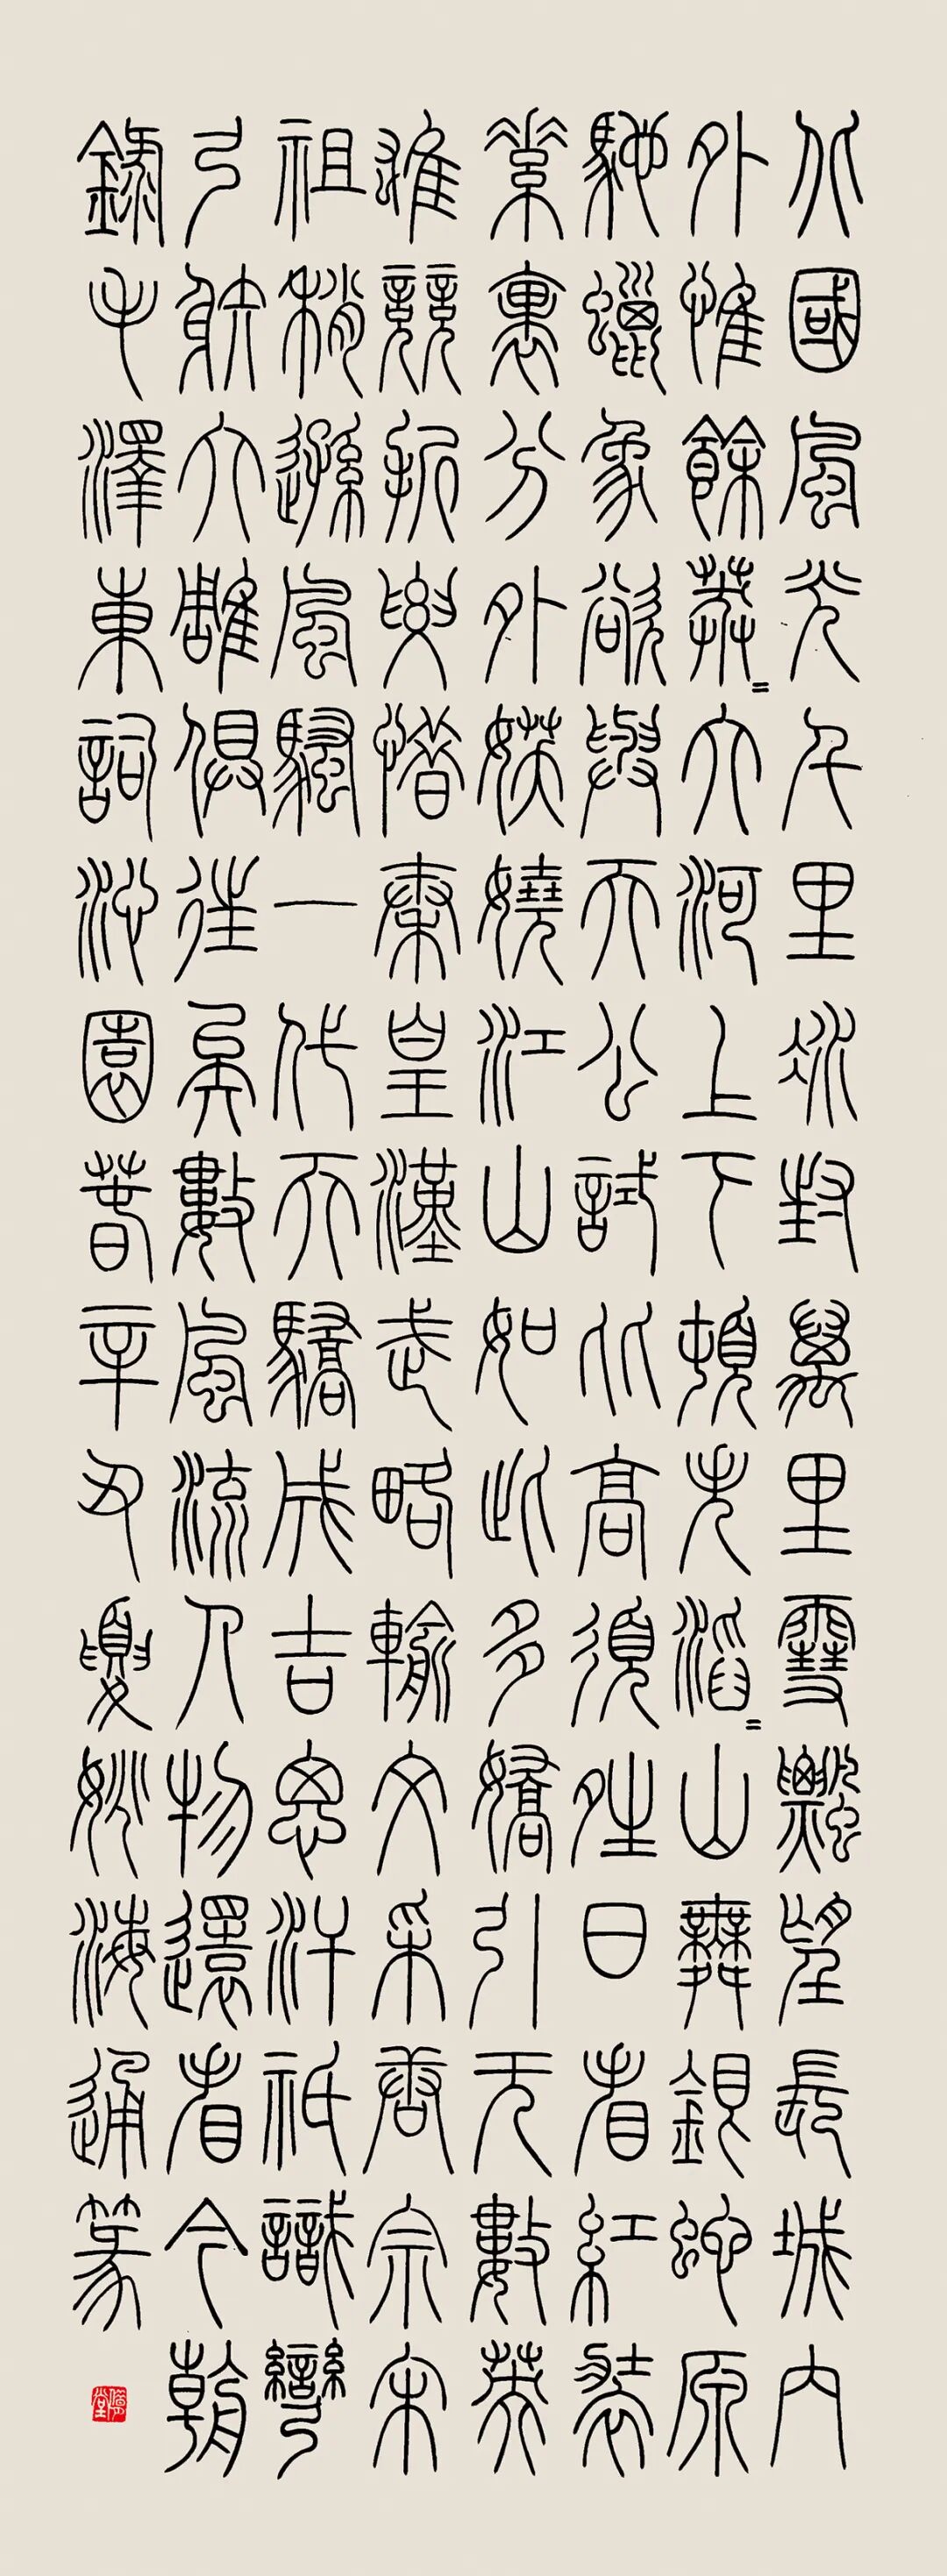 北國風光千里冰封萬里雪飄望長城內
外惟餘莽=大河上下頓失滔=山舞銀蛇原
馳蠟象欲與天公試比高須晴日看紅裝
素裹分外妖嬈江山如此多嬌引无數英
雄競折腰惜秦皇漢武略輸文采唐宗宋
祖稍遜風騷一代天驕成吉思汗祇識彎
弓射大雕俱往矣數風流人物還看今朝
錄毛澤東詞沁園春辛丑夏姚海通篆